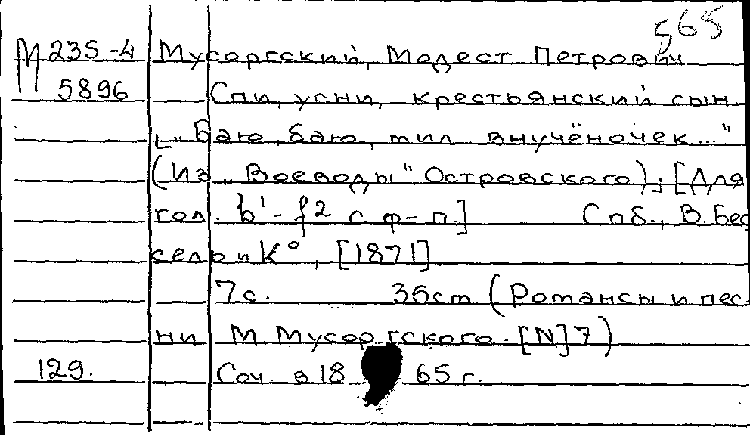 565
М 235-4 Мусоргский, Модест Петрович
5896 Спи, усни, крестьянский сын
[„Баю, баю, мил внучёночек..."
(Из „Воеводы" Островского); [Для
гол. b¹-f² с ф-п.] Спб., В. Бес
сель и К°, [1871]
7 с. 35cm (Романсы и пес
ни М. Мусоргского. [N] 7)
129. Соч. в 18 65 г.